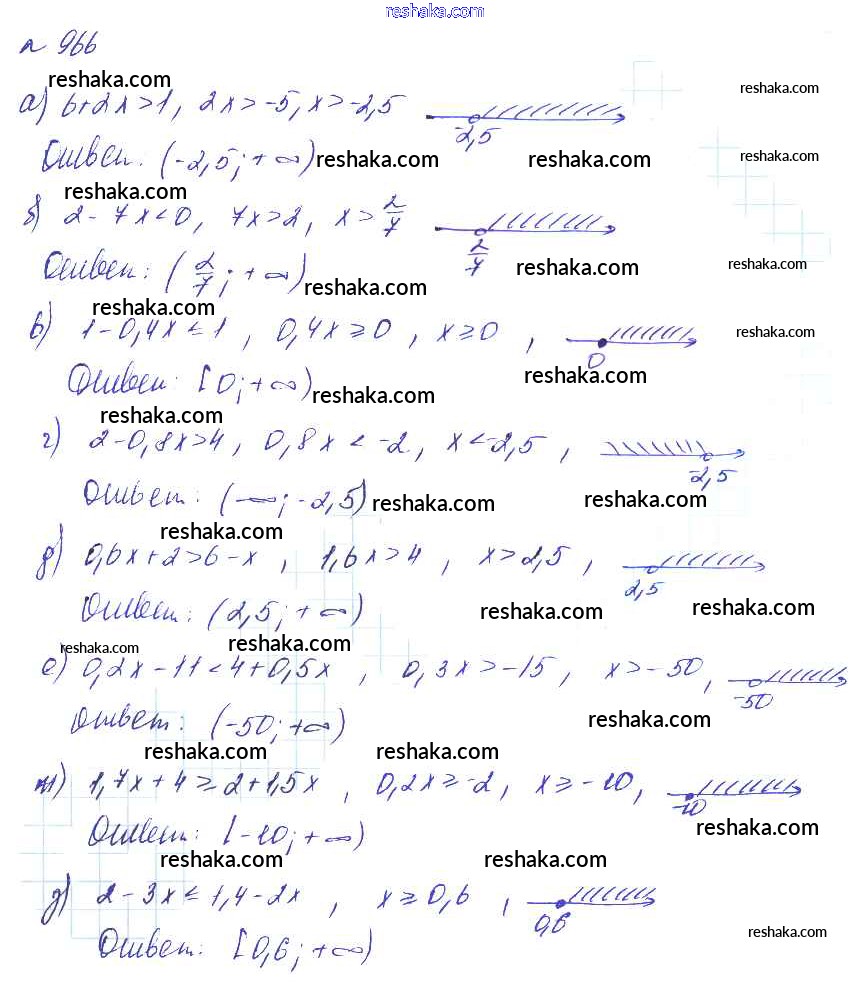 reshaka.com
№ 966
reshaka.com reshaka.com
а) 6+2x>1, 2x>-5, x>-2,5 -2,5
Ответ: (-2,5; +∞) reshaka.com reshaka.com reshaka.com
reshaka.com
б) 2-7x<0, 7x>2, x>2/7 2/7
Ответ: (2/7; +∞) reshaka.com reshaka.com reshaka.com
reshaka.com
в) 1-0,4x≤1, 0,4x≥0, x≥0, 0 reshaka.com
Ответ: [0; +∞) reshaka.com reshaka.com
reshaka.com
г) 2-0,8x>4, 0,8x<-2, x<-2,5, -2,5
Ответ: (-∞; -2,5) reshaka.com reshaka.com
reshaka.com
д) 0,6x+2>6-x, 1,6x>4, x>2,5, 2,5
Ответ: (2,5; +∞) reshaka.com reshaka.com
reshaka.com reshaka.com
е) 0,2x-11<4+0,5x, 0,3x>-15, x>-50, -50
Ответ: (-50; +∞) reshaka.com
reshaka.com reshaka.com
ж) 1,7x+4≥2+1,5x, 0,2x≥-2, x≥-10, -10
Ответ: [-10; +∞) reshaka.com
reshaka.com reshaka.com
з) 2-3x≤1,4-2x, x≥0,6, 0,6
Ответ: [0,6; +∞) reshaka.com